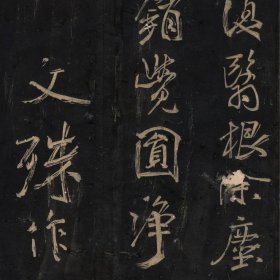 復翳根除塵
銷覺圓淨
文殊作